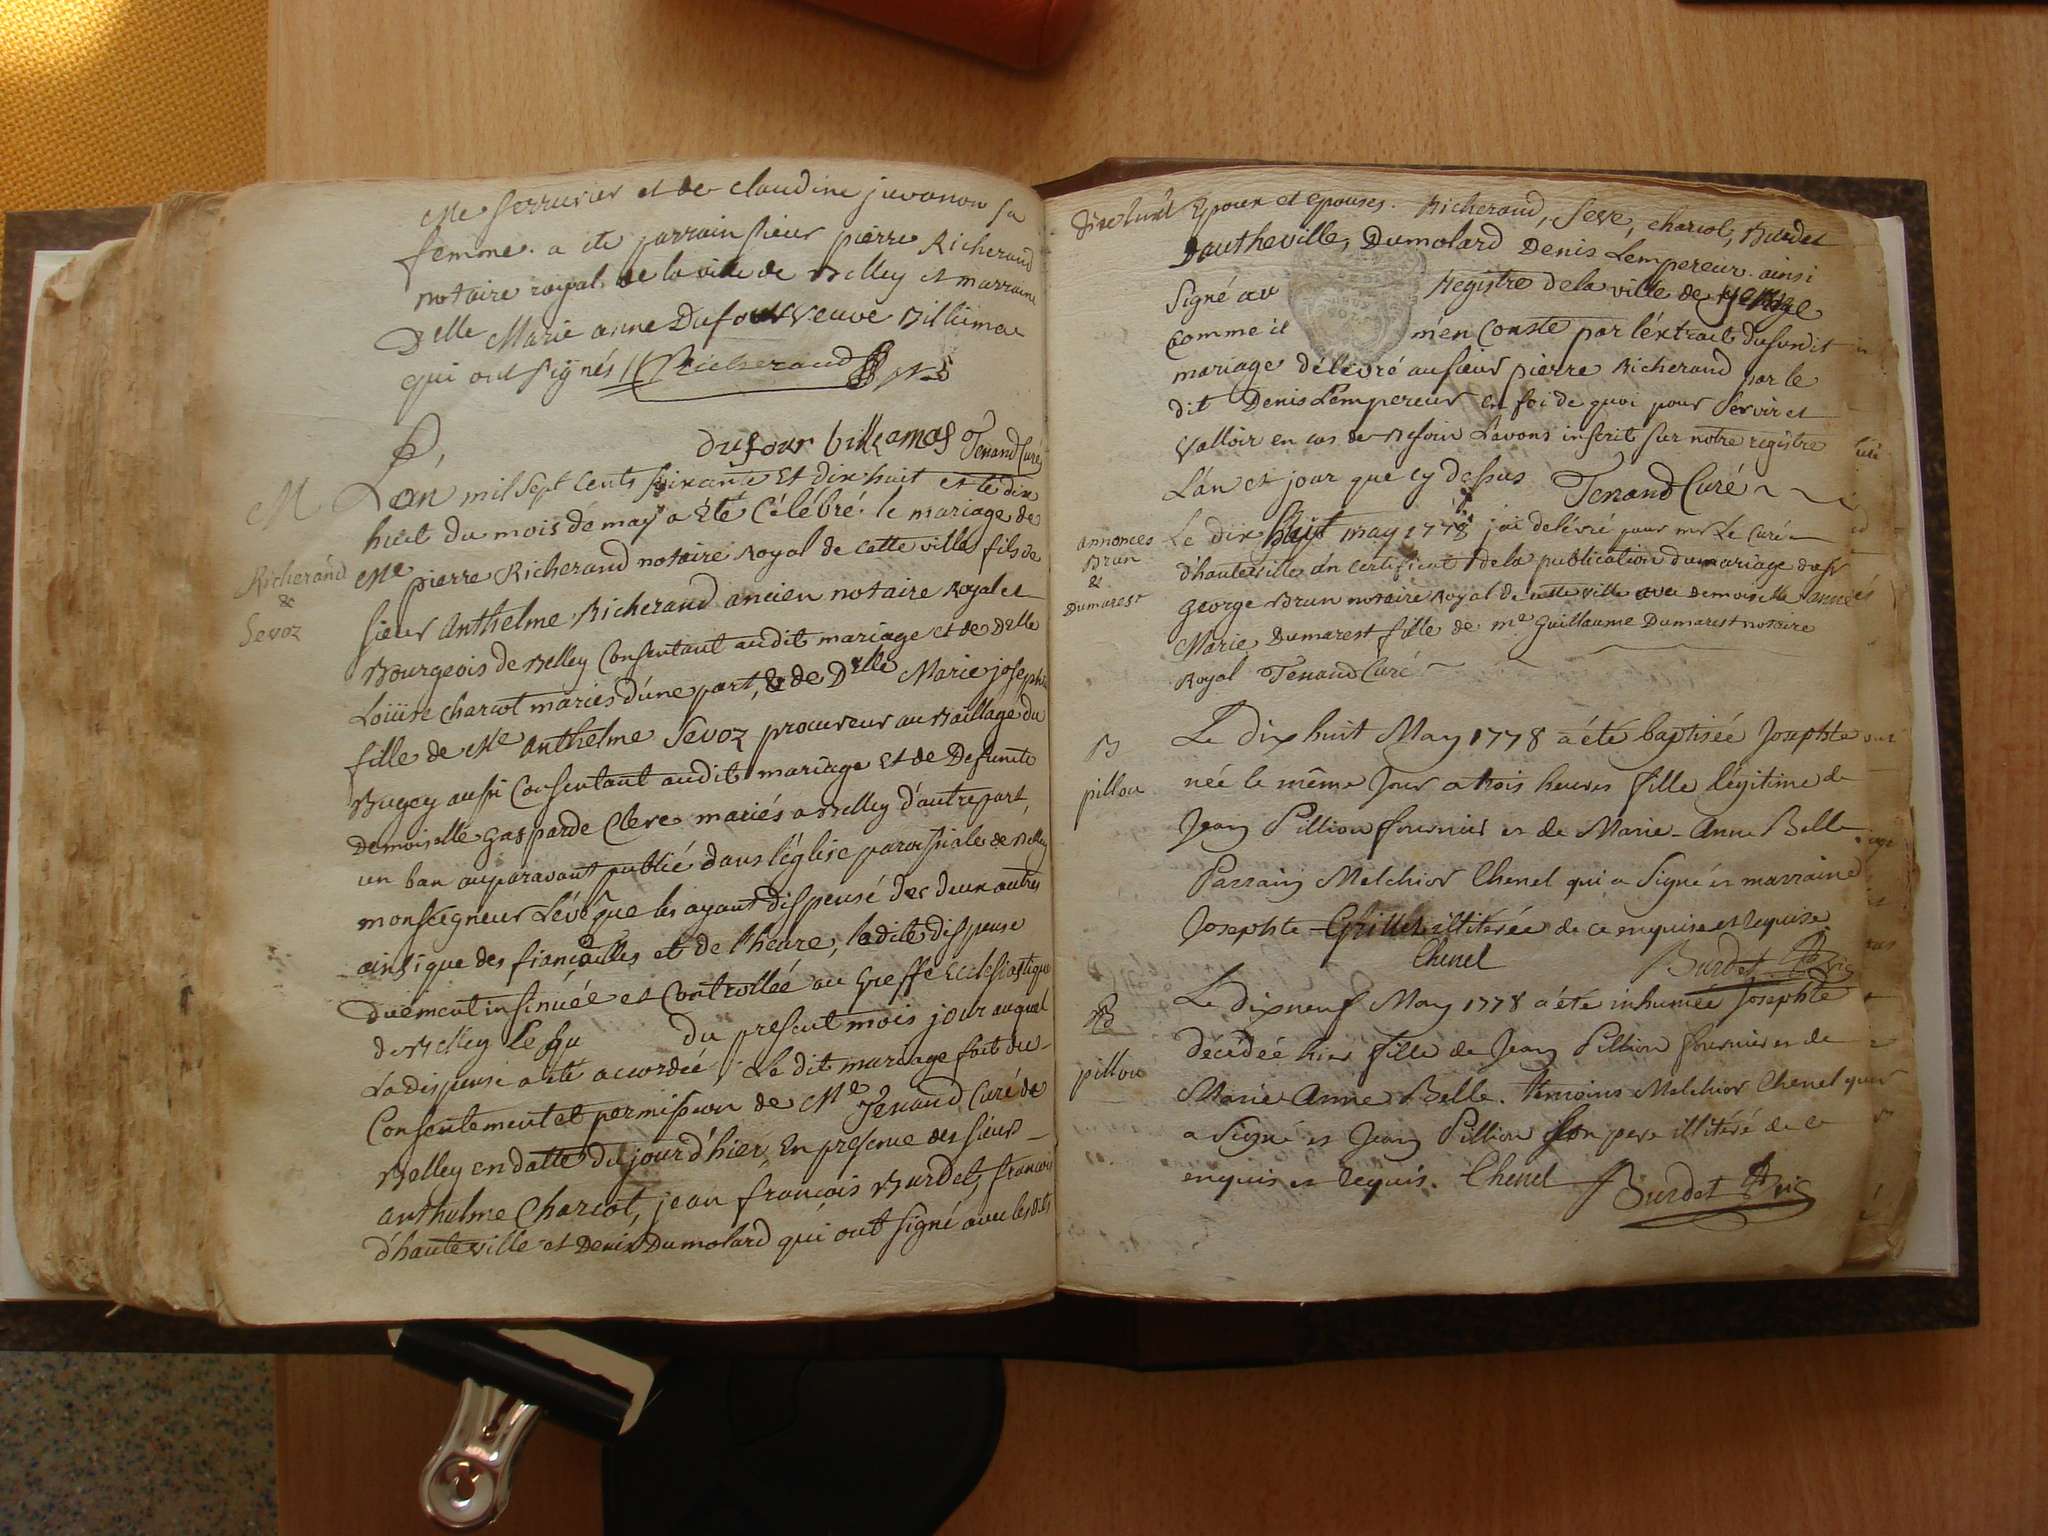 Me serrurier et de claudine juvanon sa
femme. a ete parrain sieur pierre Richerand
notaire royal de la ville de Belley et marraine
Delle Marie anne Dufour veuve Billiemae
qui ont signés // Richerand
dufour billemas Tenand Curé
M
L'an mil sept cents soixante Et dix huit et le dix
huit du mois de may a Eté Célébré le mariage de
Richerand
&
Sevoz
Me pierre Richerand notaire Royal de cette ville fils de
sieur Anthelme Richerand ancien notaire Royal et
Bourgeois de Belley Consentant audit mariage et de Delle
Loüise Charcot mariés d'une part, & de Dlle Marie josephte
fille de Me Anthelme Sevoz procureur au Baillage du
Bugey aussi Consentant audit mariage Et de Defunte
Demoiselle Gasparde Clere mariés a Belley d'autre part,
un ban auparavant publié dans l'église paroissiale de Belley
monseigneur L'évêque les ayant dispensé des deux autres
ainsi que des fiançailles et de l'heure, la dite dispense
duement insinuée et Controllée au Greffe Ecclésiastique
de Belley le du present mois jour auquel
La dispense a été accordée, Le dit mariage fait du
Consentement et permission de Me Tenand Curé de
Belley en datte du jour d'hier, En présence des sieurs
anthelme Charcot, jean françois Burdet, françois
d'hauteville et Denis Dumolard qui ont signé avec lesdits
Epoux et epouses. Richerand, Seve, charcot, Burdet
Dautheville, Dumolard Denis Lempereur. ainsi
Signé au Registre de la ville de
Comme il m'en Conste par l'éxtrait dusundit
mariage délévré au sieur pierre Richerand par le
dit Denis Lempereur en foi de quoi pour Servir et
Valloir en cas de Besoin L'avons inscrit sur notre registre
L'an et jour que cy dessus Tenand Curé
annonces
Brun
&
Dumarest
Le dix huit may 1778 j'ai delévré pour mr Le Curé
d'hauteville un certificat de la publication du mariage de sr
George Brun notaire Royal de cette ville avec Demoiselle anne
Marie Dumarest fille de me Guillaume Dumarest notaire
Royal Tenand Curé
B
pillou
Le dix huit May 1778 a été baptisée Josephte
née le même Jour a trois heures fille légitime de
Jean Pillion fournier et de Marie-Anne Belle
Parrain Melchior Chenel qui a Signé et marraine
Josephte Grillet illiterée de ce enquise et requise
Chenel Burdet Vic
pillou
Le dix neuf May 1778 a été inhumée Josephte
décédée hier fille de Jean Pillion fournier et de
Marie Anne Belle. témoins Melchior Chenel qui
a Signé et Jean Pillion son pere illitéré de ce
enquis et requis. Chenel Burdet Vic